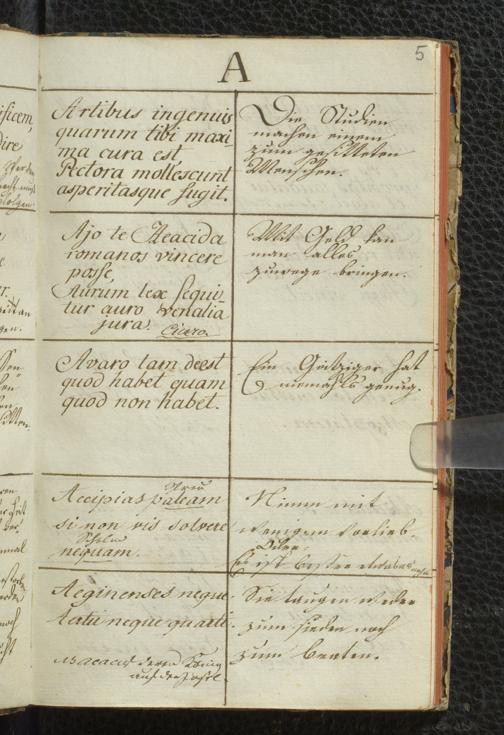 5
A
Artibus ingenuis
quarum tibi maxi
ma cura est
Pectora mollescunt
asperitasque fugit.
Die Studien
machen einem
zum gesitteten
Menschen.
Ajo te Aeacida
romanos vincere
posse
Aurum lex sequi
tur auro venalia
jura.
Mit Geld kan
man alles
zuwege bringen.
Avaro tam deest
quod habet quam
quod non habet.
Ein Geitziger hat
niemahls genug.
Accipias paleam
si non vis solvere
nequam.
Nimm mit
wenigem vorlieb
Es ist besser etwas
Aeginenses neque
tertii neque quarti
Sie taugen weder
zum sieden noch
zum braten.